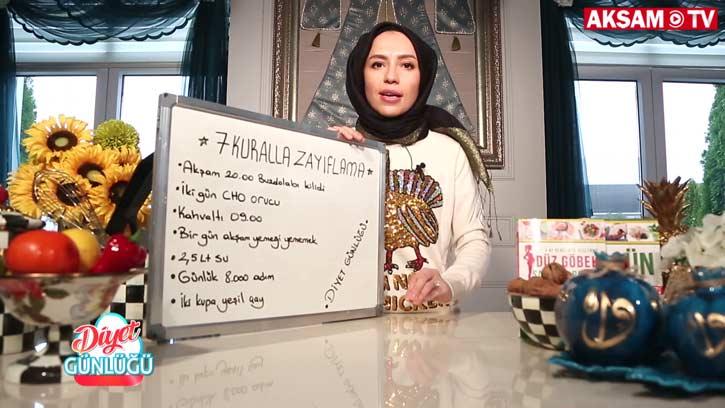 AKŞAM TV
★ 7 KURALLA ZAYIFLAMA ★
• Akşam 20.00 Buzdolabı kilidi
• İki gün CHO orucu
• Kahvaltı 09.00
• Bir gün akşam yemeği yememek
• 2,5 Lt su
• Günlük 8.000 adım
• İki kupa yeşil çay
• DİYET GÜNLÜĞÜ •
DÜZ GÖBEK
Diyet
GÜNLÜĞÜ